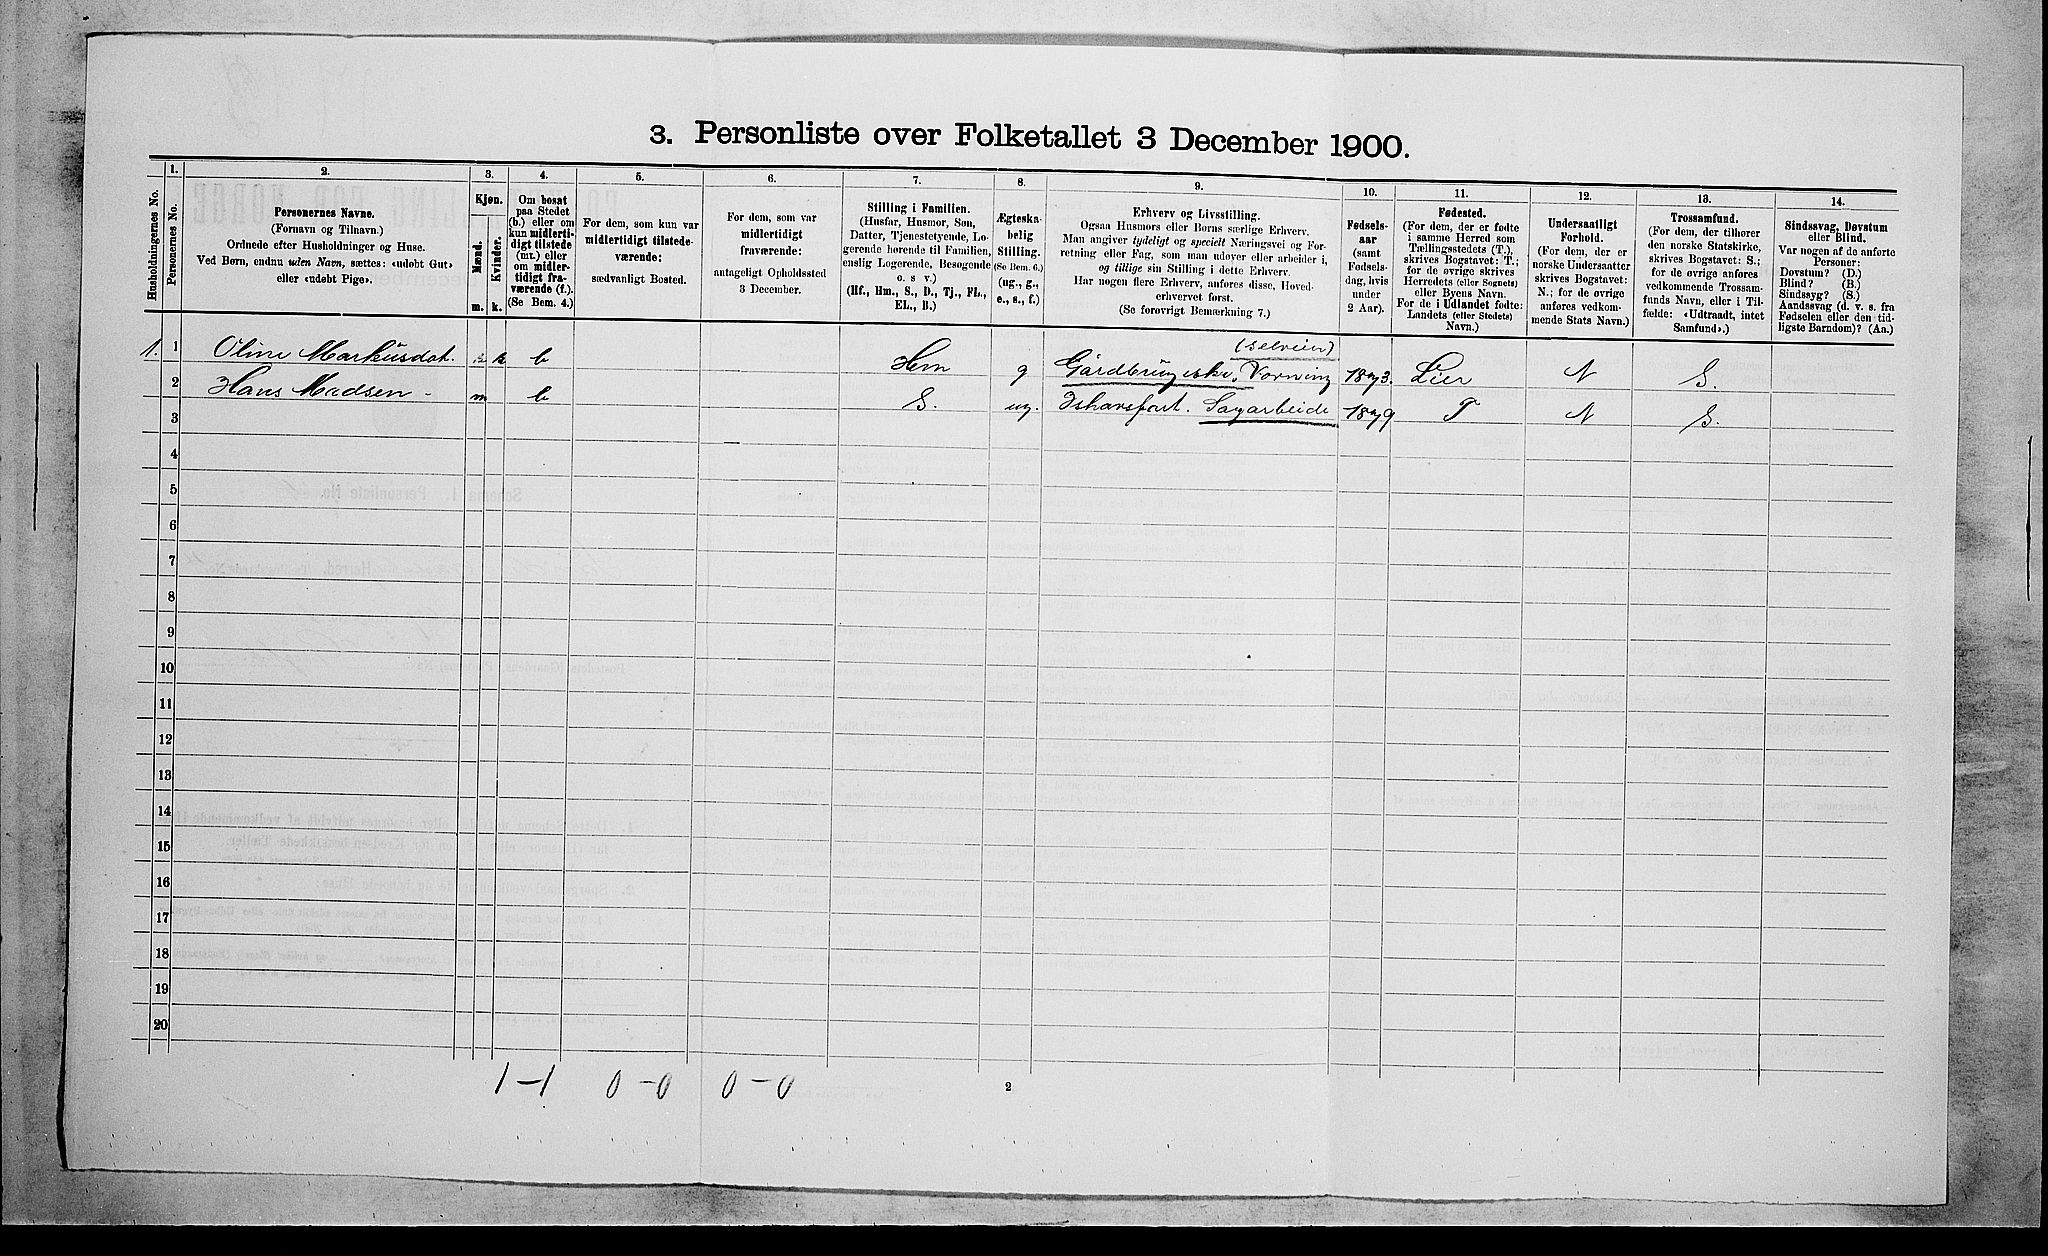 3. Personliste over Folketallet 3 December 1900.
Husholdningernes No.
1.
Personernes No.
2.
Personernes Navne.
(Fornavn og Tilnavn.)
Ordnede efter Husholdninger og Huse.
Ved Børn, endnu uden Navn, sættes: «udøbt Gut»
eller «udøbt Pige».
3.
Kjøn.
Mænd.
Kvinder.
m.
k.
4.
Om bosat
paa Stedet
(b.) eller om
kun midler-
tidigt tilstede
(mt.) eller
om midler-
tidigt fra-
værende (f.).
(Se Bem. 4.)
5.
For dem, som kun var
midlertidigt tilstede-
værende:
sædvanligt Bosted.
6.
For dem, som var
midlertidigt
fraværende:
antageligt Opholdssted
3 December.
7.
Stilling i Familien.
(Husfar, Husmor, Søn,
Datter, Tjenestetyende, Lo-
gerende hørende til Familien,
enslig Logerende, Besøgende
o. s v.)
(Hf., Hm., S., D., Tj., FL.,
EL., B.)
8.
Ægteska-
belig
Stilling.
(Se Bem. 6.)
(ug., g.,
e., s., f.)
9.
Erhverv og Livsstilling.
Ogsaa Husmors eller Børns særlige Erhverv.
Man angiver tydeligt og specielt Næringsvei og For-
retning eller Fag, som man udøver eller arbeider i,
og tillige sin Stilling i dette Erhverv.
Har nogen flere Erhverv, anføres disse, Hoved-
erhvervet først.
(Se forøvrigt Bemærkning 7.)
10.
Fødsels-
aar
(samt
Fødsels-
dag, hvis
under
2 Aar).
11.
Fødested.
(For dem, der er fødte
i samme Herred som
Tællingsstedets (T.),
skrives Bogstavet: T.;
for de øvrige skrives
Herredets (eller Sognets)
eller Byens Navn.
For de i Udlandet fødte:
Landets (eller Stedets)
Navn.)
12.
Undersaatligt
Forhold.
(For dem, der er
norske Undersaatter
skrives Bogstavet:
N.; for de øvrige
anføres vedkom-
mende Stats Navn.)
13.
Trossamfund.
(For dem, der tilhører
den norske Statskirke,
skrives Bogstavet: S.;
for de øvrige anføres
vedkommende Trossam-
funds Navn, eller i Til-
fælde: «Udtraadt, intet
Samfund».)
14.
Sindssvag, Døvstum
eller Blind.
Var nogen af de anførte
Personer:
Døvstum? (D.)
Blind? (B.)
Sindssyg? (S.)
Aandssvag (d. v. s. fra
Fødselen eller den tid-
ligste Barndom)? (Aa.)
(selveier)
1. 1 Oline Markusdat. k b Hm g Gårdbrugeske, 18 3. Lier N S.
2 Hans Madsen m b S. ug. Sagarbeide 18 9 T N S.
3
4
5
6
7
8
9
10
11
12
13
14
15
16
17
18
19
20
1-1 0-0 0-0
2